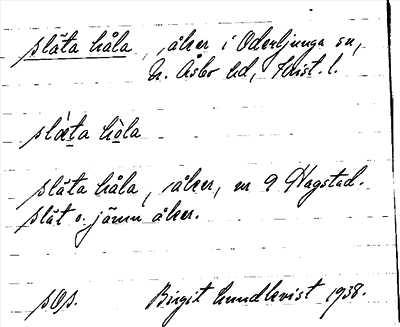 släta håla, åker i Oderljunga sn,
N. Åsbo hd, Krist. l.
slæ̀ta hòla
släta håla, åker, nr 9 Hagstad.
slät o. jämn åker.
sOs. Birgit Lundkvist 1938.